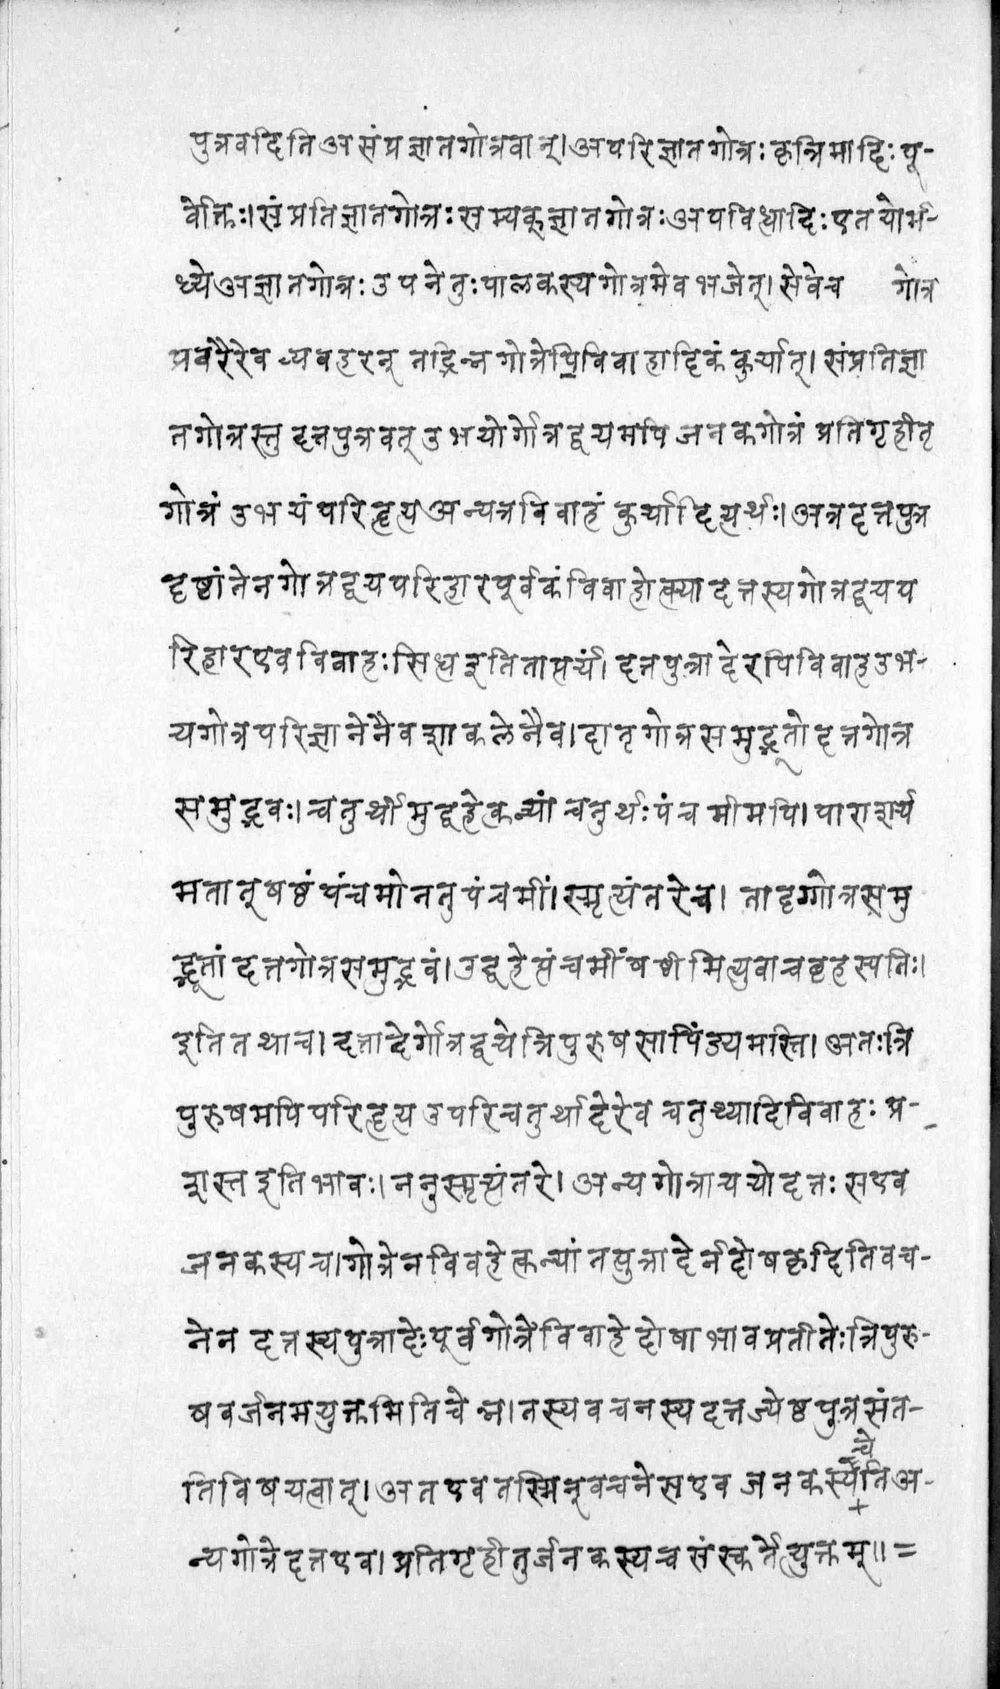 पुत्रवदिति असंप्रज्ञातगोत्रवान्। अपरिज्ञातगोत्रः कृत्रिमादिः पू-
र्वोक्तः। संप्रतिज्ञातगोत्रः सम्यक्ज्ञातगोत्रः अपविध्धादिः एतयोर्म-
ध्ये अज्ञातगोत्रः उपनेतुः पालकस्य गोत्रमेव भजेत्। सेवेच गोत्र
प्रवरैरेव व्यवहरन् तद्भिन्नगोत्रेपि विवाहादिकं कुर्यात्। संप्रतिज्ञा
तगोत्रस्तु दत्तपुत्रवत् उभयोर्गोत्रद्वयमपि जनकगोत्रं प्रतिगृहीतृ
गोत्रं उभयं परिहृत्य अन्यत्र विवाहं कुर्यादित्यर्थः। अत्र दत्तपुत्र
दृष्टांतेन गोत्रद्वयपरिहारपूर्वकं विवाहोक्त्या दत्तस्य गोत्रद्वयप
रिहार एव विवाहः सिध्ध इति तात्पर्यं। दत्तपुत्रादेरपि विवाह उभ-
यगोत्रपरिज्ञानेनैव शाकलेनैव। दातृगोत्रसमुद्भूतो दत्तगोत्र
समुद्भवः। चतुर्थीमुद्वहेत्कन्यां चतुर्थः पंचमीमपि। पाराशर्य
मतात् षष्ठं पंचमो नतु पंचमीं। स्मृत्यंतरेच। तादृग्गोत्रसमु
द्भूतां दत्तगोत्रसमुद्भवं। उद्वहेत्पंचमीं षष्ठीमित्युवाच बृहस्पतिः।
इति तथाच। दत्तादेर्गोत्रद्वयेत्रिपुरुषसापिंड्यमस्ति। अतः त्रि
पुरुषमपि परिहृत्य उपरि चतुर्थादेरेव चतुथ्यादिविवाहः प्र-
शस्त इति भावः। ननु स्मृत्यंतरे। अन्यगोत्राय यो दत्तः स एव
जनकस्य च। गोत्रेन विवहेत्कन्यां तत्पुत्रादेर्नदोषकृदिति वच-
नेन दत्तस्य पुत्रादेः पूर्वगोत्रे विवाहे दोषाभावप्रतीतेः त्रिपुरु-
षवर्जनमयुक्तमिति चेन्न। तस्य वचनस्य दत्तज्येष्ठपुत्रसंत-
तिविषयत्वात्। अत एव तस्मिन् वचने स एव जनकस्येचेति अ-
न्यगोत्रे दत्त एव। प्रतिगृहीतुर्जनकस्य च संस्कर्तेत्युक्तम्॥ =